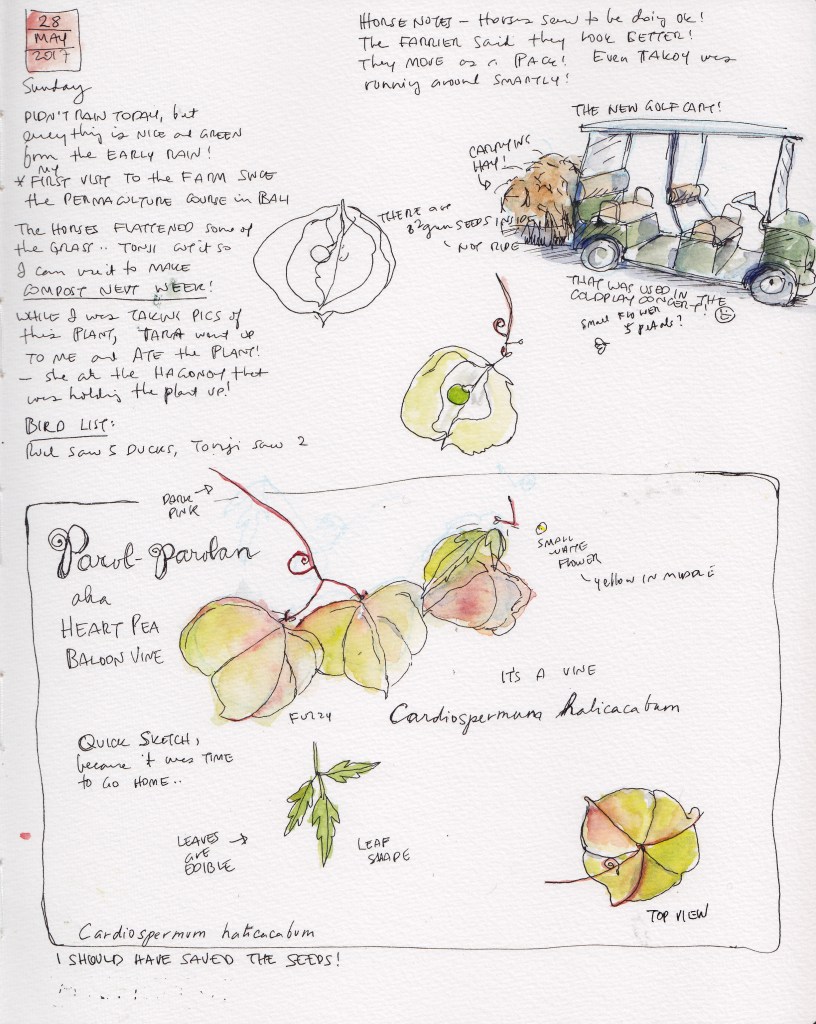 28
MAY
2017
Sunday
DIDN'T RAIN TODAY, but
everything is NICE and GREEN
from the EARLY RAIN!
* MY FIRST VISIT TO the FARM SINCE
the PERMACULTURE COURSE in BALI
The HORSES FLATTENED some of
the GRASS.. TONJI cut it so
I can use it to MAKE
COMPOST NEXT WEEK!
WHILE I was TAKING PICS of
this PLANT, TARA went up
TO ME and ATE the PLANT!
– she ate the HAGONOY that
was holding the plant up!
BIRD LIST:
saw 5 DUCKS, Tonji saw 2
HORSE NOTES – Horses seem to be doing OK!
The FARRIER said they LOOK BETTER!
They MOVE as a PACK! Even TAKOY was
running around SMARTLY!
THE NEW GOLF CART!
CARRYING
HAY!
THERE are
SEEDS INSIDE
NOT RIPE
THAT WAS USED IN THE
COLDPLAY CONCERT!
small FLOWER
5 petals?
DARK
PINK
Parol-Parolan
aka
HEART PEA
BALOON VINE
SMALL
WHITE
FLOWER
yellow IN MIDDLE
IT'S A VINE
FUZZY
Cardiospermum halicacabum
QUICK SKETCH,
because it was TIME
to GO HOME..
LEAVES
are
EDIBLE
LEAF
SHAPE
TOP VIEW
Cardiospermum haticacabum
I SHOULD HAVE SAVED THE SEEDS!